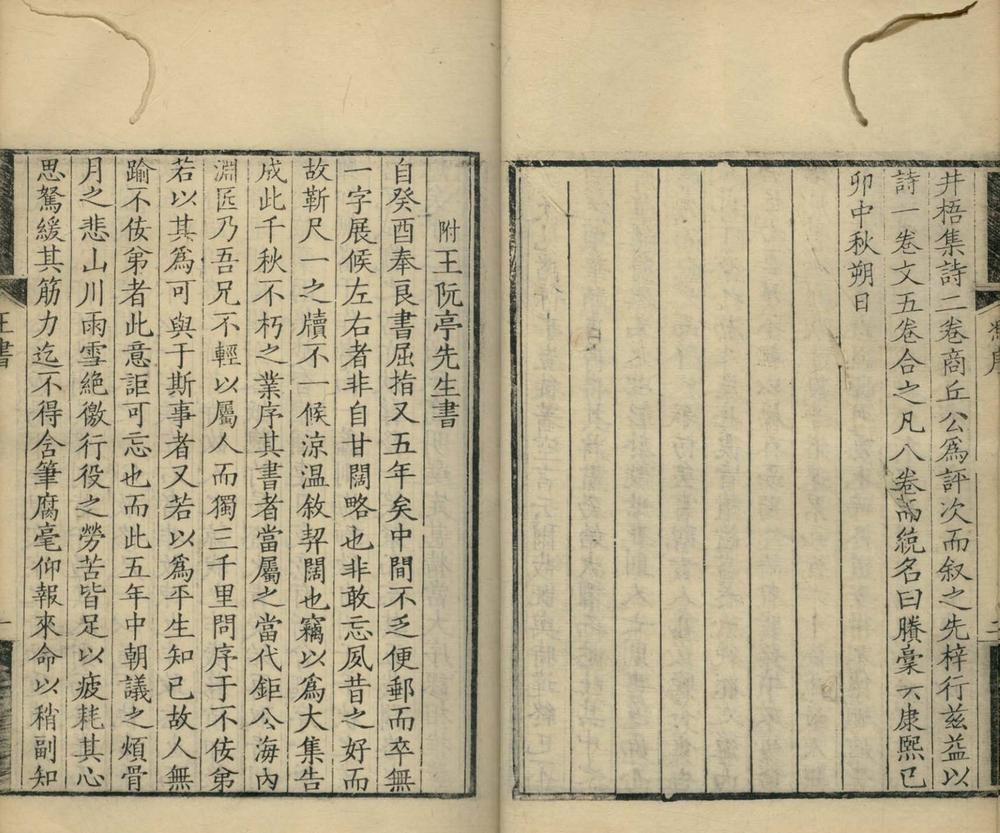 井梧集詩二卷商丘公爲評次而叙之先梓行兹益以
詩一卷文五卷合之凡八卷而統名曰賸稾云康熙已
卯中秋朔日
二
附王阮亭先生書
自癸酉奉良書屈指又五年矣中間不乏便郵而卒無
一字展候左右者非自甘闊略也非敢忘夙昔之好而
故靳尺一之牘不一候涼温敘契闊也竊以爲大集告
成此千秋不朽之業序其書者當屬之當代鉅公海內
淵匠乃吾兄不輕以屬人而獨三千里問序于不佞第
若以其爲可與于斯事者又若以爲平生知已故人無
踰不佞弟者此意詎可忘也而此五年中朝議之煩骨
月之悲山川雨雪絶徼行役之勞苦皆足以疲耗其心
思駑緩其筋力迄不得舍筆腐毫仰報來命以稍副知
王書
一